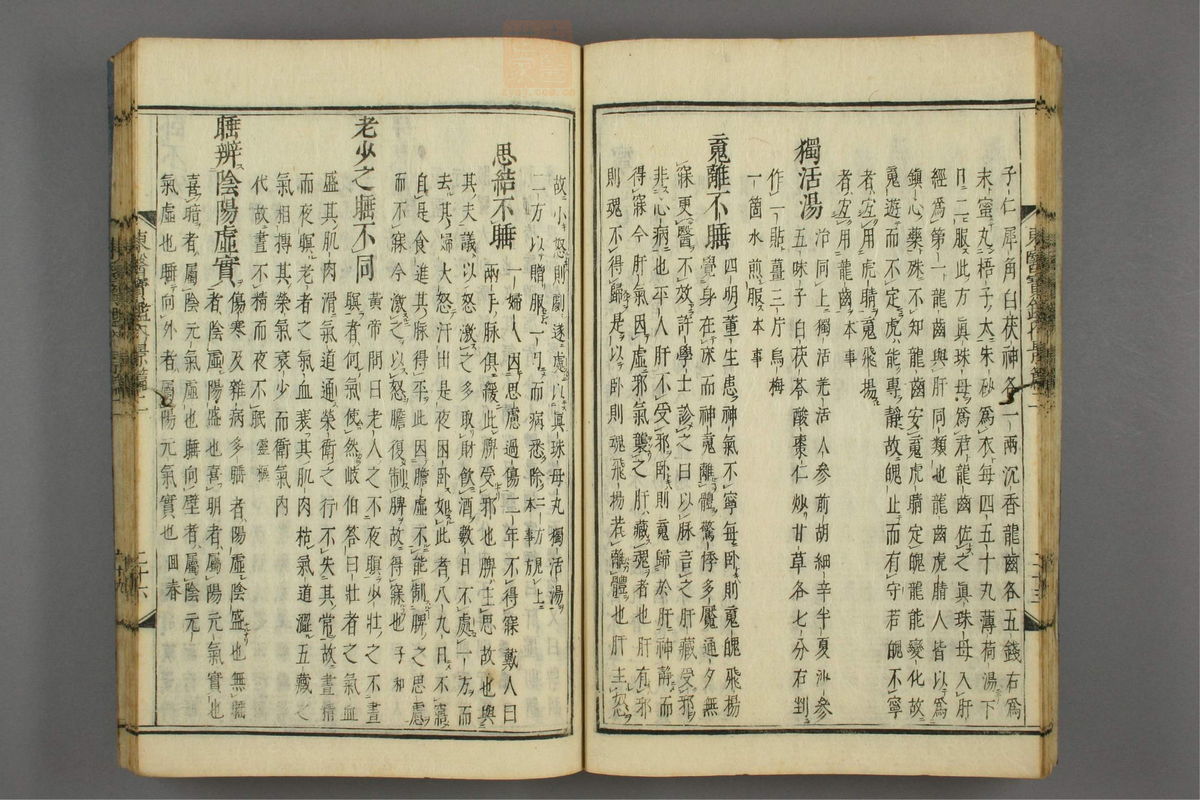 子仁犀角白茯神各一兩沉香龍齒各五錢右爲
末蜜丸梧子大朱砂爲衣每四五十丸薄荷湯下
日二服此方眞珠母爲君龍齒佐之眞珠母入肝
經爲第一龍齒與肝同類也龍齒虎睛人皆以爲
鎮心藥殊不知龍齒安䰟虎睛定魄龍能變化故
䰟遊而不定虎能專靜故魄止而有守若魄不寧
者宜用虎睛䰟飛揚
者宜用龍齒本事
獨活湯 治同上獨活羌活人參前胡細辛半夏沙參
五味子白茯苓酸棗仁炒甘草各七分右剉
作一貼薑三片烏梅
一箇水煎服本事
䰟離不睡 四明董生患神氣不寧每臥則䰟魄飛揚
覺身在床而神䰟離體驚悸多魘通夕無
寐更醫不效許學士診之曰以脉言之肝藏受邪
非心病也平人肝不受邪臥則䰟歸於肝神靜而
得寐今肝氣因虛邪氣襲之肝藏魂者也肝有邪
則魂不得歸是以臥則魂飛揚若離體也肝主怒
故小怒則劇遂處以眞珠母丸獨活湯
二方以贈服一月而病悉除本事方二方見上
思結不睡 一婦人因思慮過傷二年不得寐戴人曰
兩手脉俱緩此脾受邪也脾主思故也與
其夫議以怒激之多取財飮酒數日不處一方而
去其婦大怒汗出是夜困臥如此者八九日不寤
自是食進其脉得平此因膽虛不能制脾之思慮
而不寐今激之以怒膽復制脾故得寐也子和
老少之睡不同 黃帝問曰老人之不夜瞑少壯之不晝
瞑者何氣使然岐伯答曰壯者之氣血
盛其肌肉滑氣道通榮衛之行不失其常故晝精
而夜瞑老者之氣血衰其肌肉枯氣道澀五藏之
氣相搏其榮氣衰少而衛氣內
代故晝不精而夜不眠靈樞
睡辨陰陽虛實 傷寒及雜病多睡者陽虛陰盛也無睡
者陰虛陽盛也喜明者屬陽元氣實也
喜暗者屬陰元氣虛也睡向壁者屬陰元
氣虛也睡向外者屬陽元氣實也回春